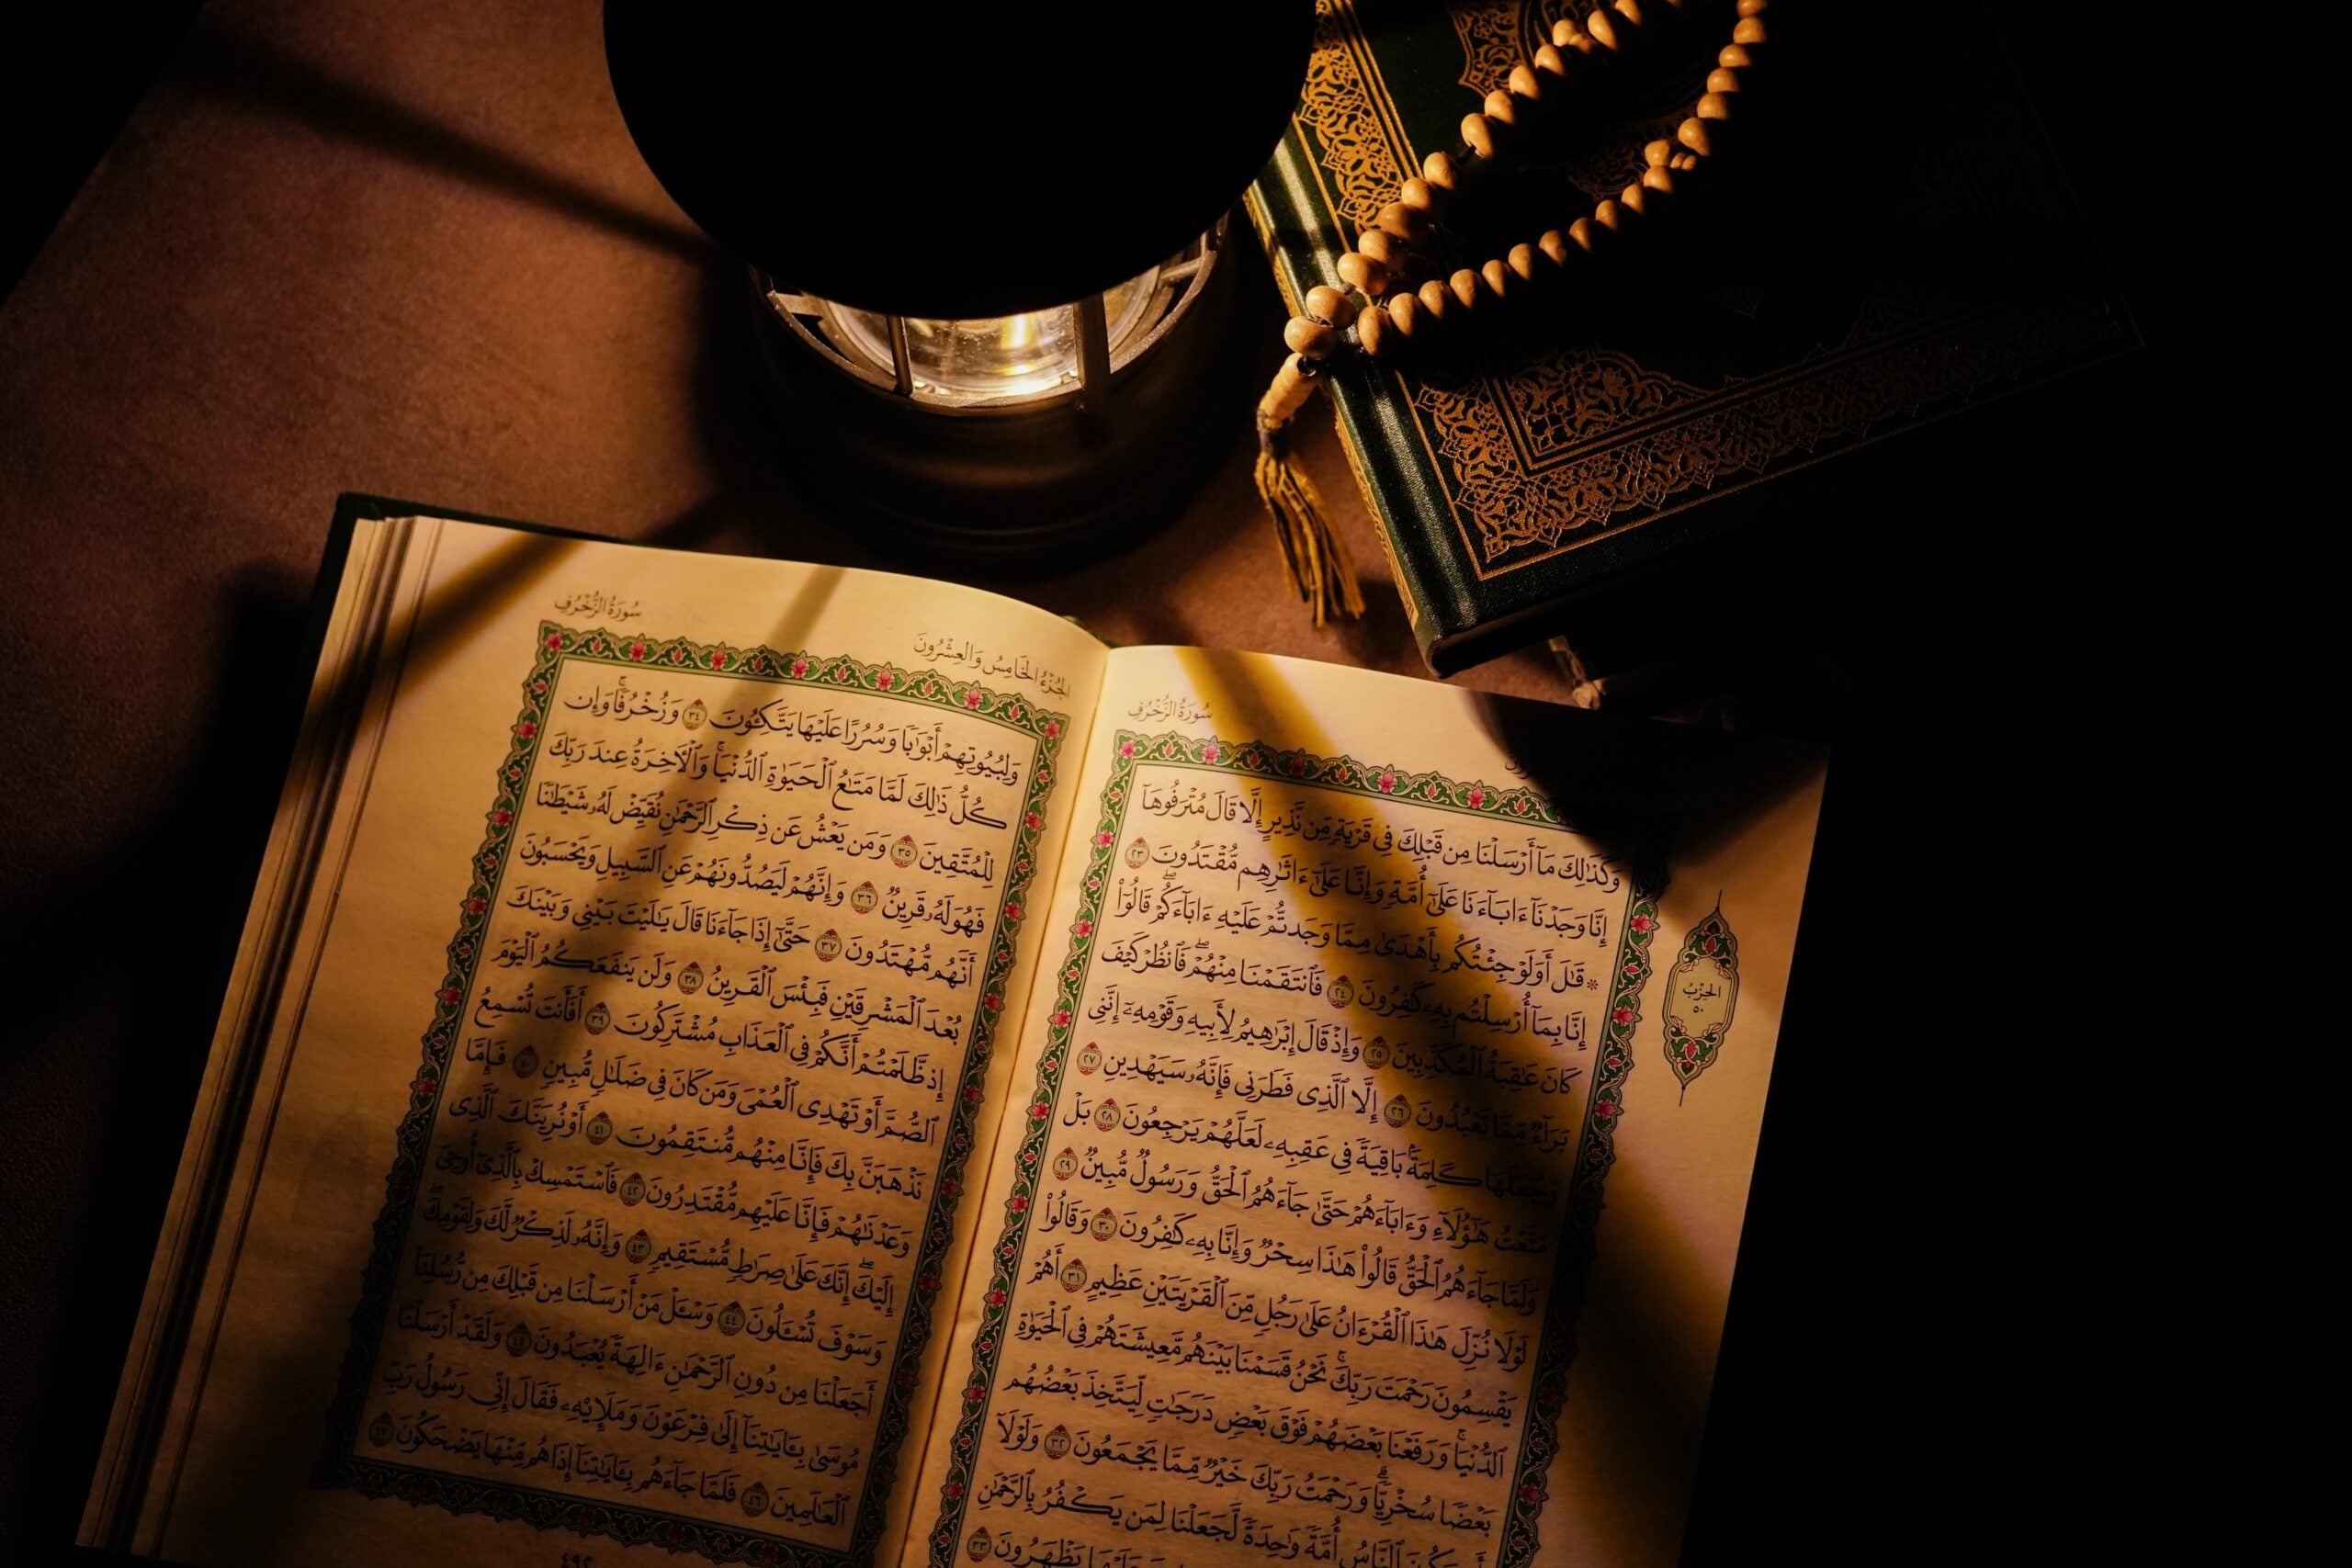 سُورَةُ الزُّخْرُفِ
وَكَذَٰلِكَ مَآ أَرْسَلْنَا مِن قَبْلِكَ فِى قَرْيَةٍ مِّن نَّذِيرٍ إِلَّا قَالَ مُتْرَفُوهَآ
إِنَّا وَجَدْنَآ ءَابَآءَنَا عَلَىٰٓ أُمَّةٍ وَإِنَّا عَلَىٰٓ ءَاثَٰرِهِم مُّقْتَدُونَ ٢٣
* قَٰلَ أَوَلَوْ جِئْتُكُم بِأَهْدَىٰ مِمَّا وَجَدتُّمْ عَلَيْهِ ءَابَآءَكُمْۖ قَالُوٓا۟
إِنَّا بِمَآ أُرْسِلْتُم بِهِۦ كَٰفِرُونَ ٢٤ فَٱنتَقَمْنَا مِنْهُمْۖ فَٱنظُرْ كَيْفَ
كَانَ عَٰقِبَةُ ٱلْمُكَذِّبِينَ ٢٥ وَإِذْ قَالَ إِبْرَٰهِيمُ لِأَبِيهِ وَقَوْمِهِۦٓ إِنَّنِى
بَرَآءٌ مِّمَّا تَعْبُدُونَ ٢٦ إِلَّا ٱلَّذِى فَطَرَنِى فَإِنَّهُۥ سَيَهْدِينِ ٢٧
وَجَعَلَهَا كَلِمَةًۢ بَاقِيَةً فِى عَقِبِهِۦ لَعَلَّهُمْ يَرْجِعُونَ ٢٨ بَلْ
مَتَّعْتُ هَٰٓؤُلَآءِ وَءَابَآءَهُمْ حَتَّىٰ جَآءَهُمُ ٱلْحَقُّ وَرَسُولٌ مُّبِينٌ ٢٩
وَلَمَّا جَآءَهُمُ ٱلْحَقُّ قَالُوا۟ هَٰذَا سِحْرٌ وَإِنَّا بِهِۦ كَٰفِرُونَ ٣٠ وَقَالُوا۟
لَوْلَا نُزِّلَ هَٰذَا ٱلْقُرْءَانُ عَلَىٰ رَجُلٍ مِّنَ ٱلْقَرْيَتَيْنِ عَظِيمٍ ٣١ أَهُمْ
يَقْسِمُونَ رَحْمَتَ رَبِّكَۚ نَحْنُ قَسَمْنَا بَيْنَهُم مَّعِيشَتَهُمْ فِى ٱلْحَيَوٰةِ
ٱلدُّنْيَاۚ وَرَفَعْنَا بَعْضَهُمْ فَوْقَ بَعْضٍ دَرَجَٰتٍ لِّيَتَّخِذَ بَعْضُهُم
بَعْضًا سُخْرِيًّاۗ وَرَحْمَتُ رَبِّكَ خَيْرٌ مِّمَّا يَجْمَعُونَ ٣٢ وَلَوْلَآ
ٱلنَّاسُ أُمَّةً وَٰحِدَةً لَّجَعَلْنَا لِمَن يَكْفُرُ بِٱلرَّحْمَٰنِ
يَظْهَرُونَ ٣٣
الحِزْبُ
٥٠
الجُزْءُ الخَامِسُ وَالعِشْرُونَ
سُورَةُ الزُّخْرُفِ
وَلِبُيُوتِهِمْ أَبْوَٰبًا وَسُرُرًا عَلَيْهَا يَتَّكِـُٔونَ ٣٤ وَزُخْرُفًاۚ وَإِن
كُلُّ ذَٰلِكَ لَمَّا مَتَٰعُ ٱلْحَيَوٰةِ ٱلدُّنْيَاۚ وَٱلْءَاخِرَةُ عِندَ رَبِّكَ
لِلْمُتَّقِينَ ٣٥ وَمَن يَعْشُ عَن ذِكْرِ ٱلرَّحْمَٰنِ نُقَيِّضْ لَهُۥ شَيْطَٰنًا
فَهُوَ لَهُۥ قَرِينٌ ٣٦ وَإِنَّهُمْ لَيَصُدُّونَهُمْ عَنِ ٱلسَّبِيلِ وَيَحْسَبُونَ
أَنَّهُم مُّهْتَدُونَ ٣٧ حَتَّىٰٓ إِذَا جَآءَنَا قَالَ يَٰلَيْتَ بَيْنِى وَبَيْنَكَ
بُعْدَ ٱلْمَشْرِقَيْنِ فَبِئْسَ ٱلْقَرِينُ ٣٨ وَلَن يَنفَعَكُمُ ٱلْيَوْمَ
إِذ ظَّلَمْتُمْ أَنَّكُمْ فِى ٱلْعَذَابِ مُشْتَرِكُونَ ٣٩ أَفَأَنتَ تُسْمِعُ
ٱلصُّمَّ أَوْ تَهْدِى ٱلْعُمْىَ وَمَن كَانَ فِى ضَلَٰلٍ مُّبِينٍ ٤٠ فَإِمَّا
نَذْهَبَنَّ بِكَ فَإِنَّا مِنْهُم مُّنتَقِمُونَ ٤١ أَوْ نُرِيَنَّكَ ٱلَّذِى
وَعَدْنَٰهُمْ فَإِنَّا عَلَيْهِم مُّقْتَدِرُونَ ٤٢ فَٱسْتَمْسِكْ بِٱلَّذِىٓ أُوحِىَ
إِلَيْكَۖ إِنَّكَ عَلَىٰ صِرَٰطٍ مُّسْتَقِيمٍ ٤٣ وَإِنَّهُۥ لَذِكْرٌ لَّكَ وَلِقَوْمِكَۖ
وَسَوْفَ تُسْـَٔلُونَ ٤٤ وَسْـَٔلْ مَنْ أَرْسَلْنَا مِن قَبْلِكَ مِن رُّسُلِنَآ
أَجَعَلْنَا مِن دُونِ ٱلرَّحْمَٰنِ ءَالِهَةً يُعْبَدُونَ ٤٥ وَلَقَدْ أَرْسَلْنَا
مُوسَىٰ بِـَٔايَٰتِنَآ إِلَىٰ فِرْعَوْنَ وَمَلَإِي۟هِۦ فَقَالَ إِنِّى رَسُولُ رَبِّ
ٱلْعَٰلَمِينَ ٤٦ فَلَمَّا جَآءَهُم بِـَٔايَٰتِنَآ إِذَا هُم مِّنْهَا يَضْحَكُونَ ٤٧
٤٩٢